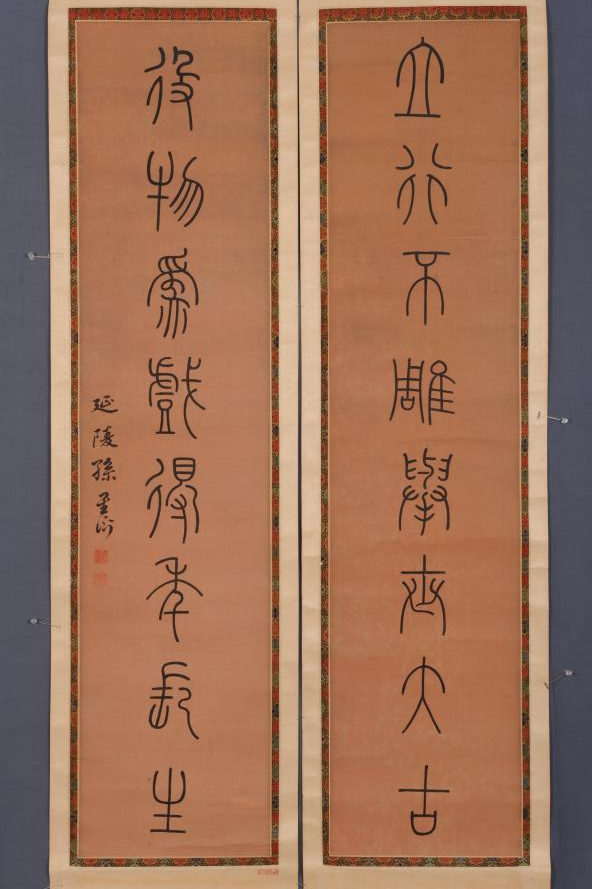 立行不雕擧大古
役物爲戲得年長生
延陵孫星衍